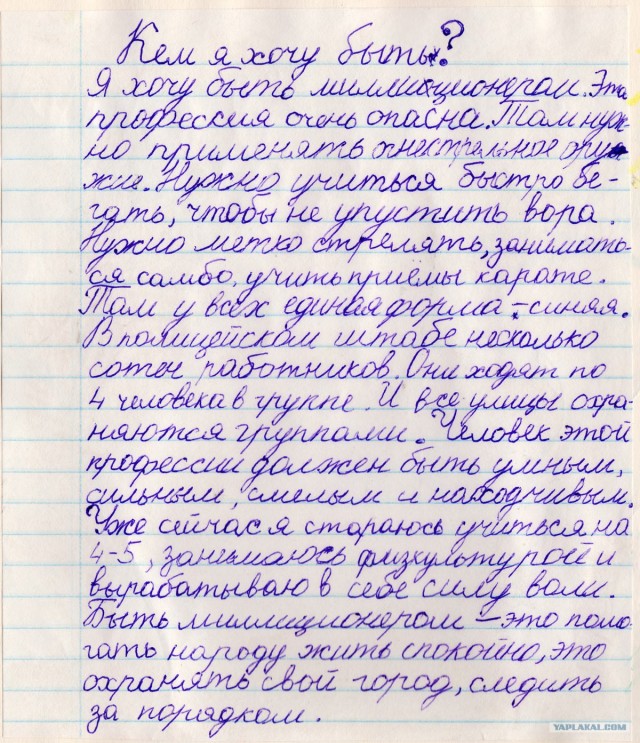 Кем я хочу быть?
Я хочу быть миллиционером. Эта
профессия очень опасна. Там нуж-
но применять огнестрельное ору-
жие. Нужно учиться быстро бе-
гать, чтобы не упустить вора.
Нужно метко стрелять, занимать-
ся самбо, учить приёмы карате.
Там у всех единая форма - синяя.
В полицейском штабе несколько
сотен работников. Они ходят по
4 человека в группе. И все улицы охра-
няются группами. Человек этой
профессии должен быть умным,
сильным, смелым и находчивым.
Уже сейчас я стараюсь учиться на
4-5, занимаюсь физкультурой и
вырабатываю в себе силу воли.
Быть миллиционером - это помо-
гать народу жить спокойно, это
охранять свой город, следить
за порядком.
YAPLAKAL.COM